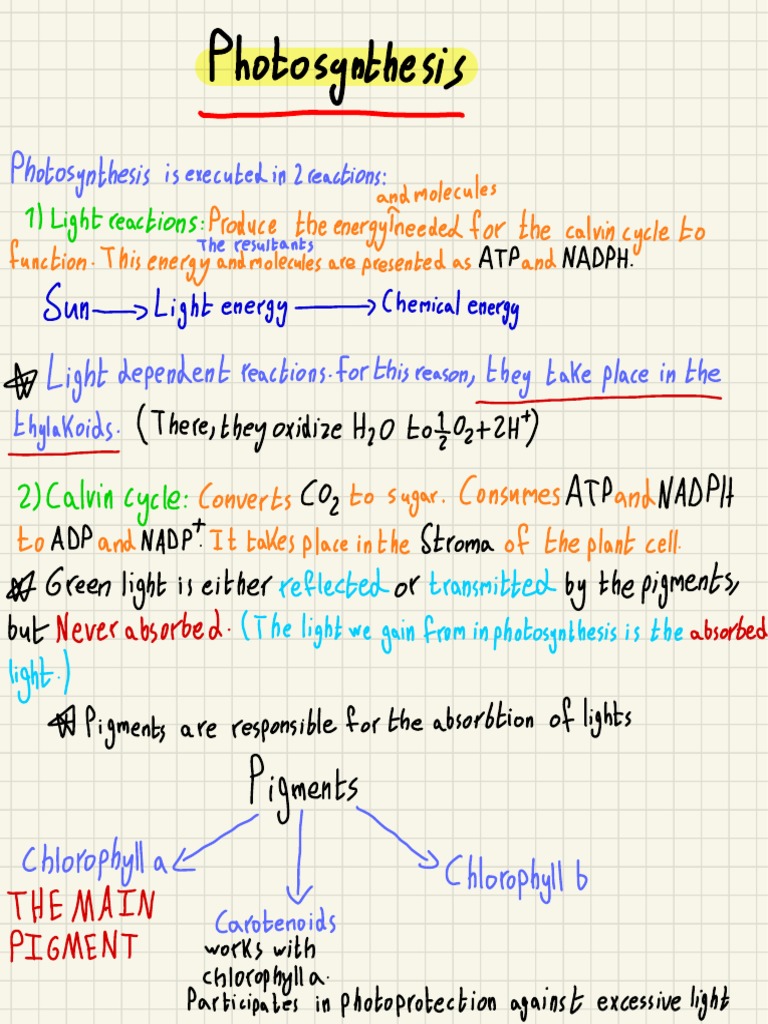 Photosynthesis
Photosynthesis is executed in 2 reactions:
and molecules
1) Light reactions: Produce the energy needed for the calvin cycle to
The resultants
function. This energy and molecules are presented as ATP and NADPH.
Sun → Light energy → Chemical energy
Light dependent reactions. for this reason, they take place in the
thylakoids. (There, they oxidize H₂O to ½O₂+2H⁺)
2) Calvin cycle: Converts CO₂ to sugar. Consumes ATP and NADPH
to ADP and NADP⁺. It takes place in the Stroma of the plant cell.
Green light is either reflected or transmitted by the pigments,
but Never absorbed. (The light we gain from in photosynthesis is the absorbed
light.)
Pigments are responsible for the absorbtion of lights
Pigments
Chlorophyll a
THE MAIN
PIGMENT
Carotenoids
works with
chlorophyll a.
Participates in photoprotection against excessive light
Chlorophyll b